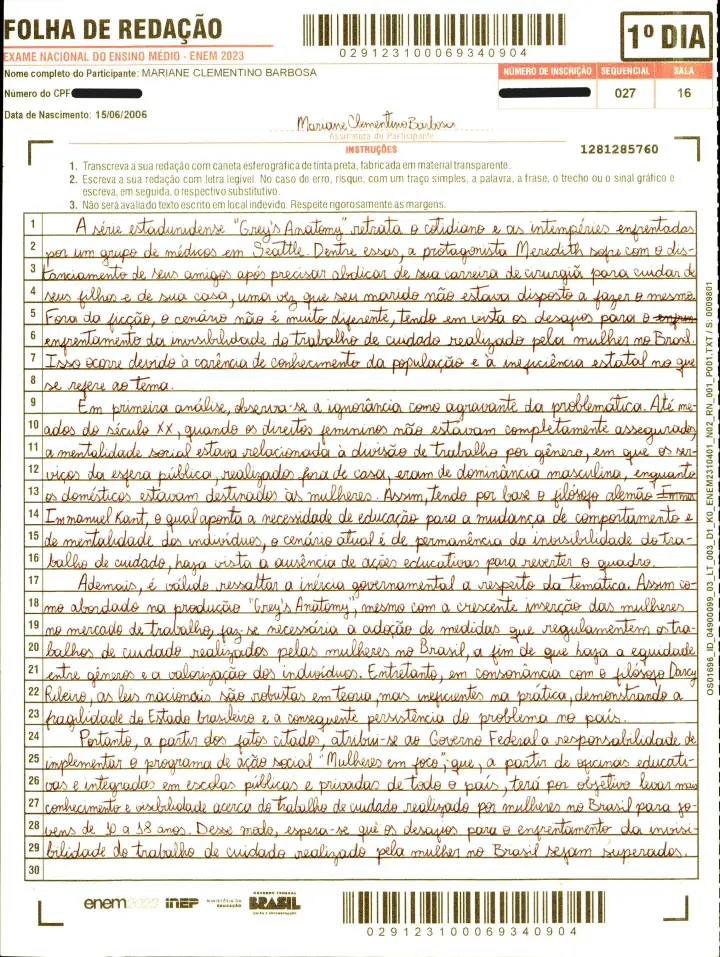 FOLHA DE REDAÇÃO
EXAME NACIONAL DO ENSINO MÉDIO - ENEM 2023
029123100069340904
1º DIA
Nome completo do Participante: MARIANE CLEMENTINO BARBOSA
Número do CPF
Data de Nascimento: 15/06/2006
NÚMERO DE INSCRIÇÃO SEQUENCIAL SALA
027 16
Mariane Clementino Barbosa
Assinatura do Participante
INSTRUÇÕES
1281285760
1. Transcreva a sua redação com caneta esferográfica de tinta preta, fabricada em material transparente.
2. Escreva a sua redação com letra legível. No caso de erro, risque, com um traço simples, a palavra, a frase, o trecho ou o sinal gráfico e
escreva, em seguida, o respectivo substitutivo.
3. Não será avaliado texto escrito em local indevido. Respeite rigorosamente as margens.
1 A série estadunidense "Grey's Anatomy" retrata o cotidiano e as intempéries enfrentadas
2 por um grupo de médicos em Seattle. Dentre essas, a protagonista Meredith sofre com o dis-
3 tanciamento de seus amigos após precisar abdicar de sua carreira de cirurgiã para cuidar de
4 seus filhos e de sua casa, uma vez que seu marido não estava disposto a fazer o mesmo.
5 Fora da ficção, o cenário não é muito diferente, tendo em vista os desafios para o
6 enfrentamento da invisibilidade do trabalho de cuidado realizado pela mulher no Brasil.
7 Isso ocorre devido à carência de conhecimento da população e à ineficiência estatal no que
8 se refere ao tema.
9 Em primeira análise, observa-se a ignorância como agravante da problemática. Até me-
10 ados do século XX, quando os direitos femininos não estavam completamente assegurados,
11 a mentalidade social estava relacionada à divisão de trabalho por gênero, em que os ser-
12 viços da esfera pública, realizados fora de casa, eram de dominância masculina, enquanto
13 os domésticos estavam destinados às mulheres. Assim, tendo por base o filósofo alemão Imma
14 Immanuel Kant, o qual aponta a necessidade de educação para a mudança de comportamento e
15 de mentalidade dos indivíduos, o cenário atual é de permanência da invisibilidade do tra-
16 balho de cuidado, haja vista a ausência de ações educativas para reverter o quadro.
17 Ademais, é válido ressaltar a inércia governamental a respeito da temática. Assim co-
18 mo abordado na produção "Grey's Anatomy", mesmo com a crescente inserção das mulheres
19 no mercado de trabalho, faz-se necessária a adoção de medidas que regulamentem os tra-
20 balhos de cuidado realizados pelas mulheres no Brasil, a fim de que haja a equidade
21 entre gêneros e a valorização dos indivíduos. Entretanto, em consonância com o filósofo Darcy
22 Ribeiro, as leis nacionais são robustas em teoria, mas ineficientes na prática, demonstrando a
23 fragilidade do Estado brasileiro e a consequente persistência do problema no país.
24 Portanto, a partir dos fatos citados, atribui-se ao Governo Federal a responsabilidade de
25 implementar o programa de ação social "Mulheres em foco", que, a partir de oficinas educati-
26 vas e integradas em escolas públicas e privadas de todo o país, terá por objetivo levar mais
27 conhecimento e visibilidade acerca do trabalho de cuidado realizado por mulheres no Brasil para jo-
28 vens de 10 a 18 anos. Desse modo, espera-se que os desafios para o enfrentamento da invisi-
29 bilidade do trabalho de cuidado realizado pela mulher no Brasil sejam superados.
30
OS01696_ID_04900099_03_LT_003_D1_K0_ENEM2310401_N02_RN_001_P001.TXT / S: 0009801
enem2023 inep MINISTÉRIO DA EDUCAÇÃO GOVERNO FEDERAL BRASIL UNIÃO E RECONSTRUÇÃO
029123100069340904